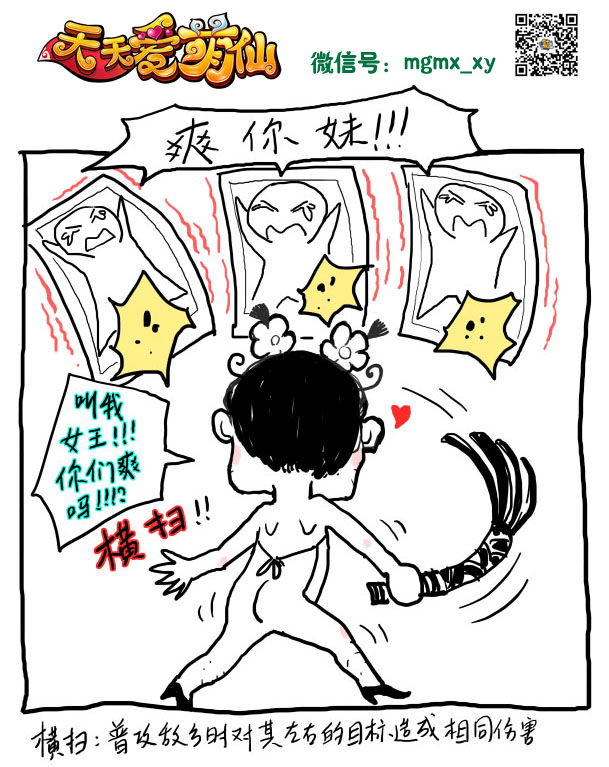 天天爱萌仙
微信号：mgmx_xy
爽你妹!!!
叫我
女王!!!
你们爽
吗!!!?
横扫!!
横扫：普攻敌方时对其左右的目标造成相同伤害